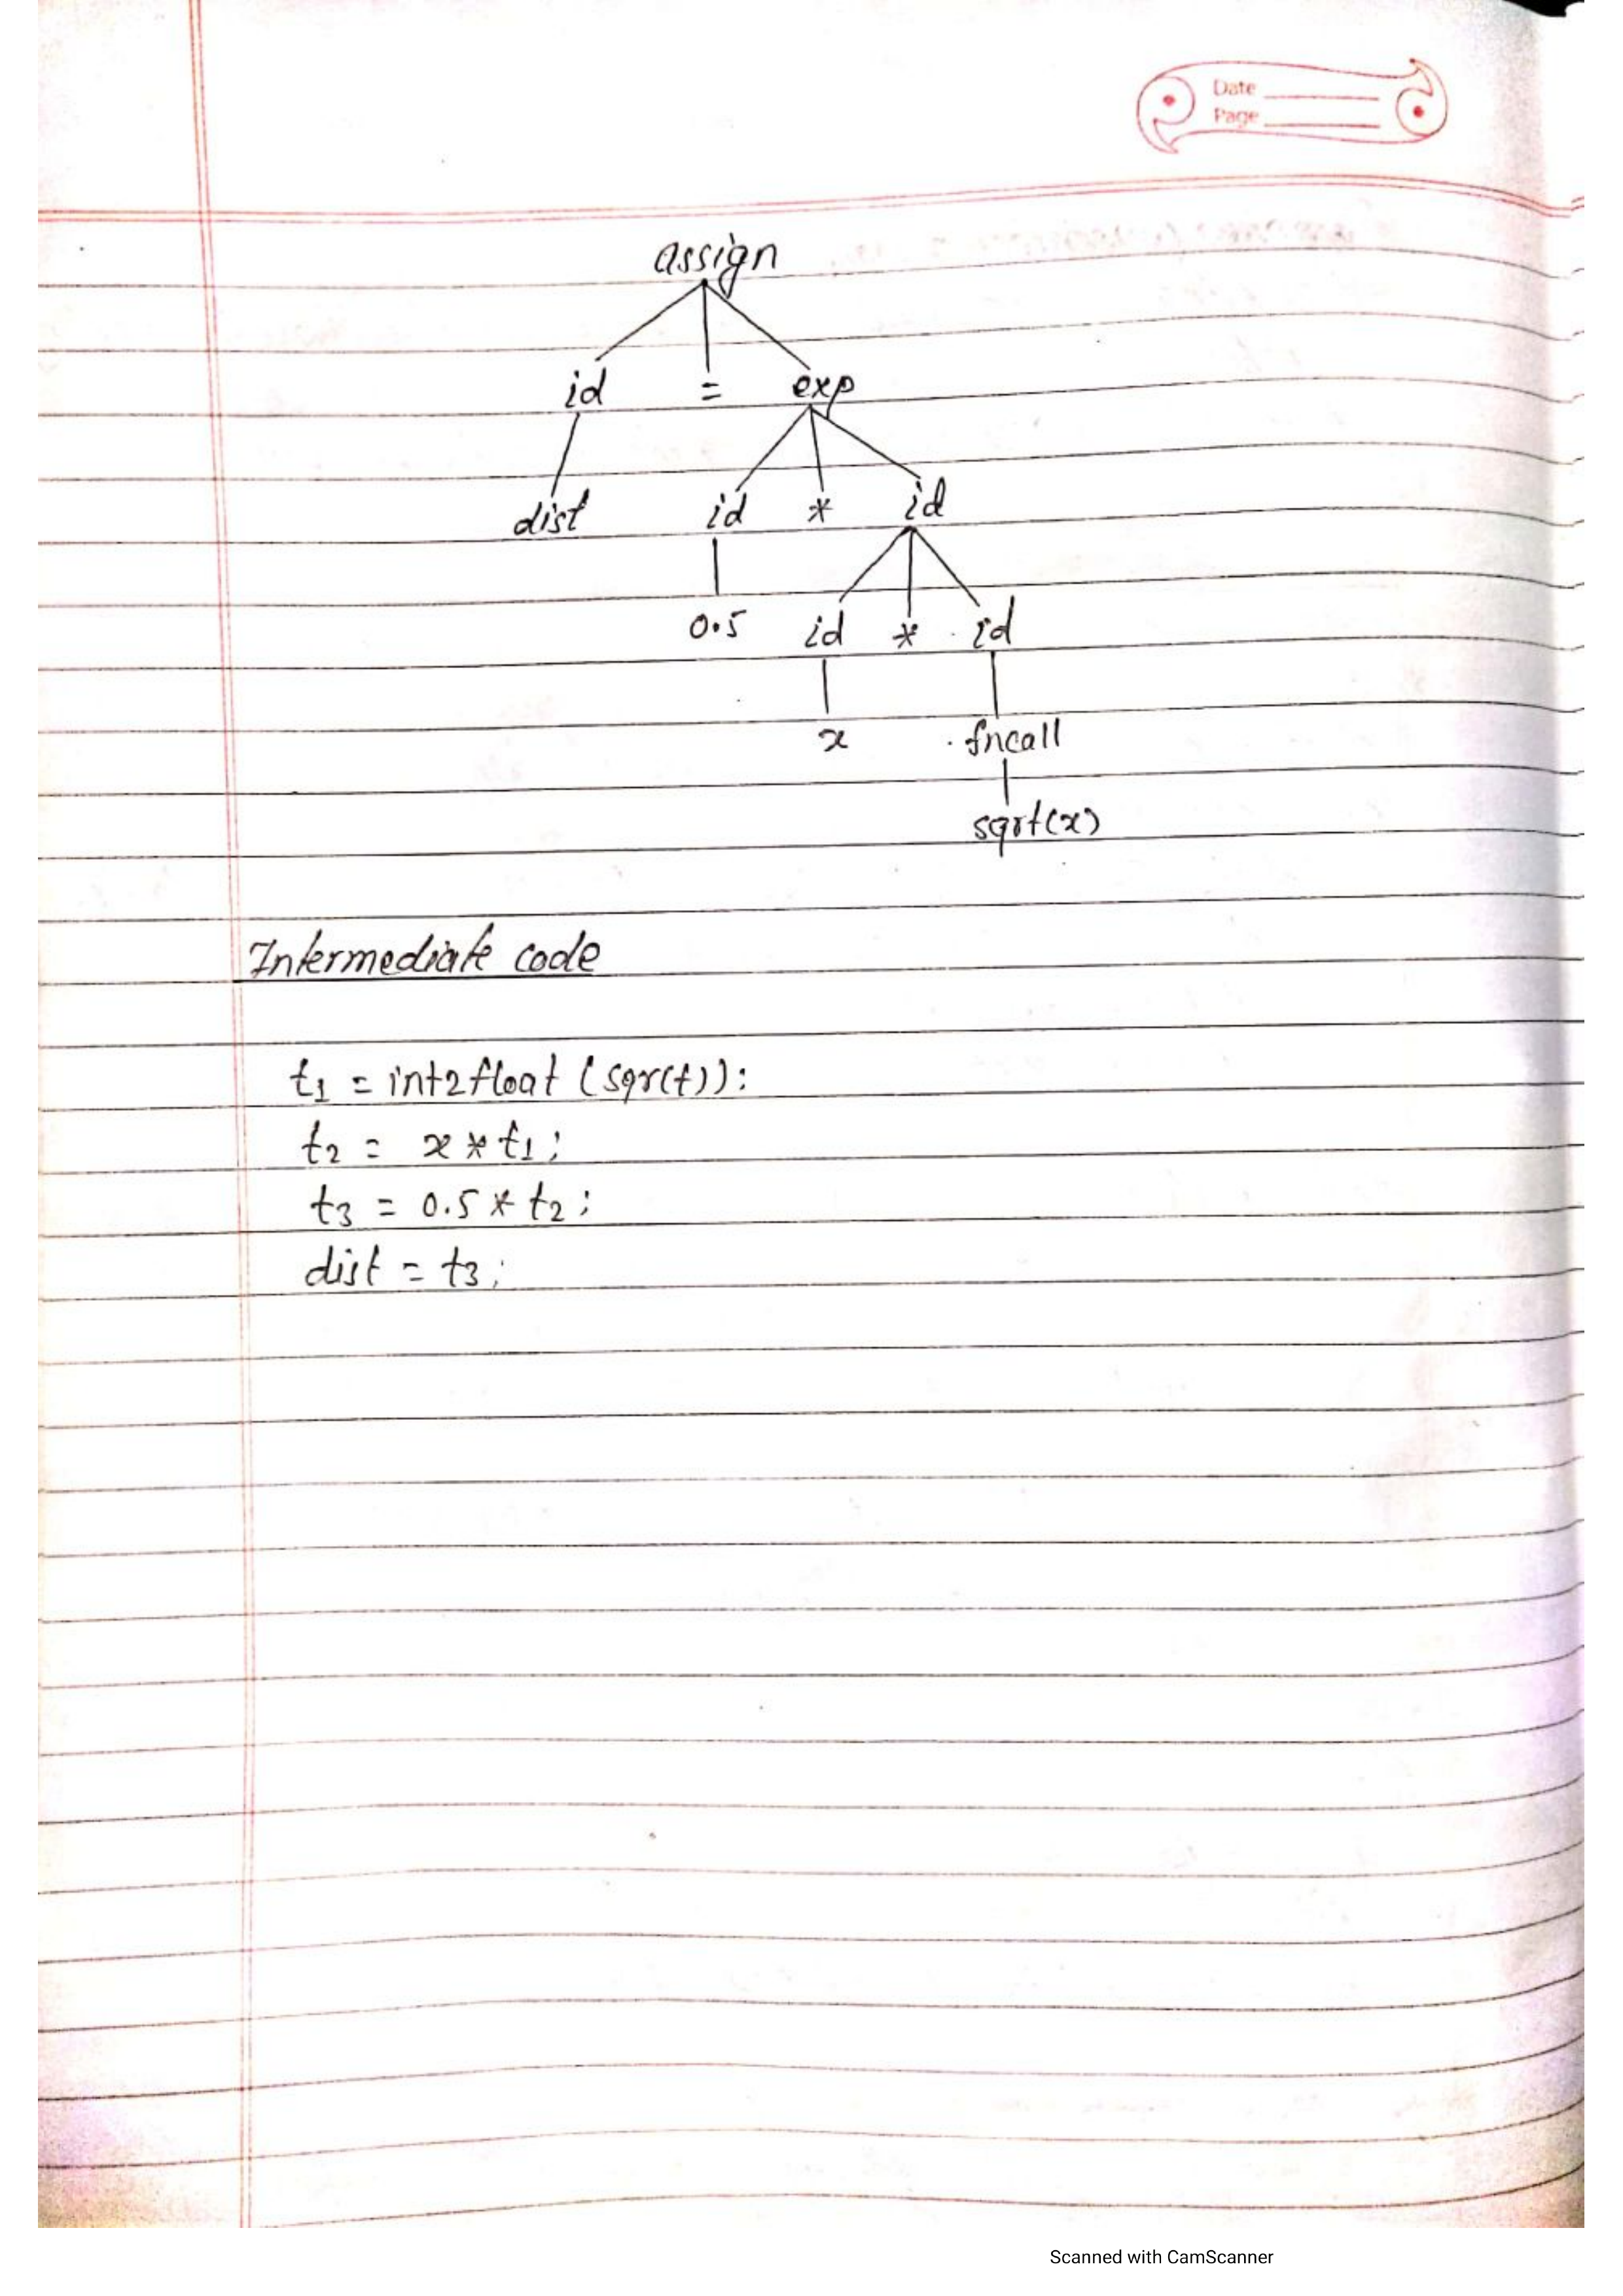 Date
Page
assign
id = exp
dist id * id
0.5 id * id
x fncall
sqrt(x)
Intermediate code
t1 = int2float (sqr(t)):
t2 = x * t1;
t3 = 0.5 * t2;
dist = t3;
Scanned with CamScanner